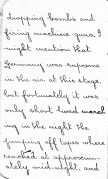 dropping bombs and
firing machine guns. I
might mention that
Germany was supreme
in the air at this stage,
but fortunately it was
only short lived march
ing in the night the
jumping off tapes where
reached at approxim-
ately mid-night, and